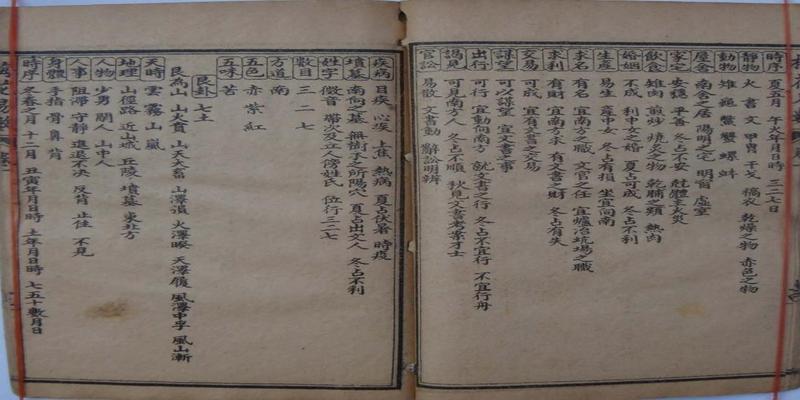 時序 夏五月 午火年月日時 三二七日
靜物 火 書文 甲冑 干戈 槁衣 乾燥之物 赤色之物
動物 雉 龜 鱉 蟹 螺 蚌
屋舍 南舍之居 陽明之宅 明窗 虛室
家宅 安穩 平善 冬占不安 尅體主火災
飲食 雉肉 煎炒 燒炙之物 乾脯之類 熱肉
婚姻 不成 利中女之婚 夏占可成 冬占不利
生產 易生 產中女 冬占有損 坐宜向南
求名 有名 宜南方之職 文官之任 宜爐冶坑場之職
求利 有財 宜南方求 有文書之財 冬占有失
交易 可成 宜有文書之交易
謀望 可以謀望 宜文書之事
出行 可行 宜動向南方 就文書之行 冬占不宜行 不宜行舟
謁見 可見南方人 冬占不順 秋見文書考案才士
官訟 易散 文書動 辭訟明辨
疾病 目疾 心疾 上焦 熱病 夏占伏暑 時疫
墳墓 南向之墓 無樹之所陽穴 夏占出文人 冬占不利
姓字 徵音 帶次及立人傍姓氏 位行三二七
數目 三 二 七
方道 南
五色 赤 紫 紅
五味 苦
艮卦 七 土
艮為山 山火賁 山天大畜 山澤損 火澤睽 天澤履 風澤中孚 風山漸
天時 雲 霧 山嵐
地理 山徑路 近山城 丘陵 墳墓 東北方
人物 少男 閒人 山中人
人事 阻滯 守靜 進退不決 反背 止住 不見
身體 手指 骨 鼻 背
時序 冬春之月 十二月 丑寅年月日時 土年月日時 七五十數月日